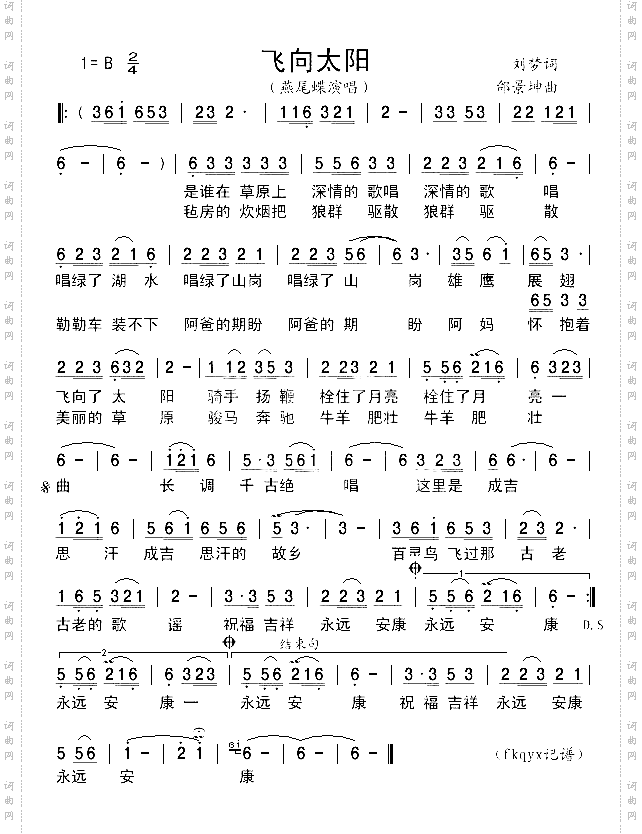 飞向太阳
1=B 2/4
(燕尾蝶演唱)
刘梦词
邰景坤曲
‖:( 361 653 | 23 2· | 116 321 | 2 - | 33 53 | 22 121 |
6 - | 6 - ) | 6 3 3 3 3 3 | 5 5 6 3 3 | 2 2 3 2 1 6 | 6 - |
是谁在 草原上 深情的 歌唱 深情的 歌 唱
毡房的 炊烟把 狼群 驱散 狼群 驱 散
6 2 3 2 1 6 | 2 2 3 2 1 | 2 2 3 56 | 6 3· | 35 6 1 | 65 3· |
唱绿了 湖 水 唱绿了山岗 唱绿了 山 岗 雄 鹰 展 翅
65 3 3
勒勒车 装不下 阿爸的期盼 阿爸的 期 盼 阿 妈 怀 抱着
2 2 3 632 | 2 - | 1 12 35 3 | 2 23 2 1 | 5 56 216 | 6 323 |
飞向了 太 阳 骑手 扬 鞭 栓住了月亮 栓住了月 亮 一
美丽的 草 原 骏马 奔 驰 牛羊 肥壮 牛羊 肥 壮
6 - | 6 - | 1 2 1 6 | 5· 3 561 | 6 - | 6 323 | 66· | 6 - |
曲 长 调 千 古绝 唱 这里是 成吉
1 2 1 6 | 5 6 1 6 5 | 3 56 6 | 53· | 3 - | 3 6 1 6 5 3 | 2 3 2 |
思 汗 成吉 思汗的 故乡 百灵鸟 飞过那 古 老
1
1 6 5 321 | 2 - | 3·3 53 | 2 23 2 1 | 5 56 216 | 6 - :‖
古老的 歌 谣 祝福 吉祥 永远 安康 永远 安 康 D.S
2
结束句
5 56 216 | 6· 323 | 5 56 216 | 6 - | 3·3 53 | 2 23 21 |
永远 安 康一 永远 安 康 祝 福 吉祥 永远 安康
5 56 | 1 - | 2 1 | 6 - ‖
永远 安 康
(fkqyx记谱)
词曲网
词曲网